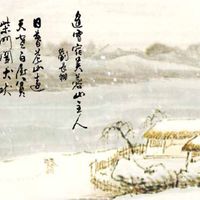 逢雪宿芙蓉山主人
劉長卿
日暮蒼山遠
天寒白屋貧
柴門聞犬吠